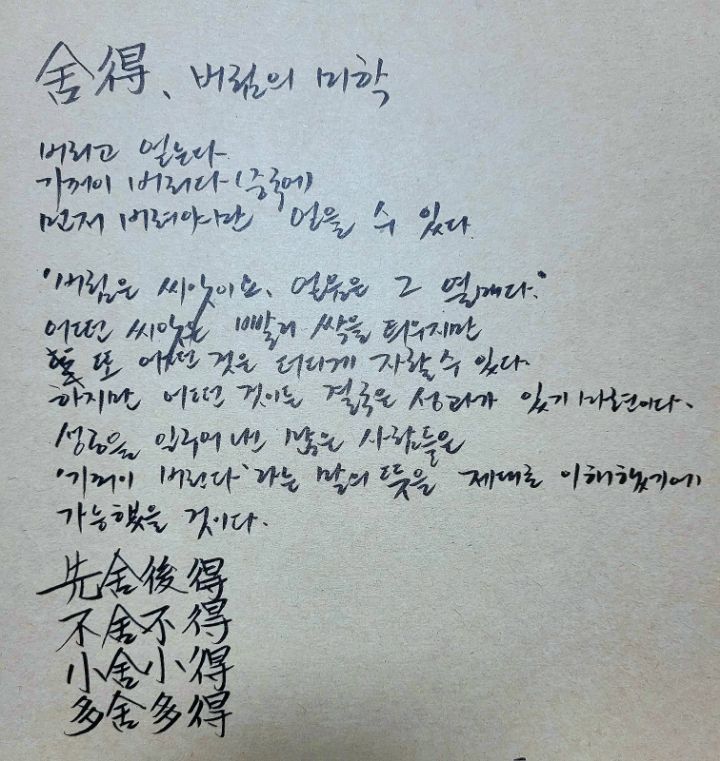 舍得、버림의 미학
버리고 얻는다
기꺼이 버리다(중국어)
먼저 버려야만 얻을 수 있다
"버림은 씨앗이요, 얻음은 그 열매다."
어떤 씨앗은 빨리 싹을 틔우지만
또 어떤 것은 더디게 자랄 수 있다.
하지만 어떤 것이든 결국은 성과가 있기 마련이다.
성공을 일구어 낸 많은 사람들은
'기꺼이 버린다'라는 말의 뜻을 제대로 이해했기에
가능했을 것이다.
先舍後得
不舍不得
小舍小得
多舍多得